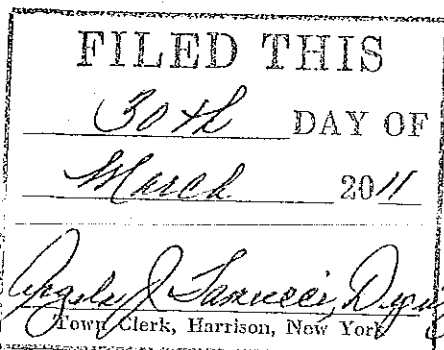 FILED THIS
30th DAY OF
March 2011
Angela J
Town Clerk, Harrison, New York